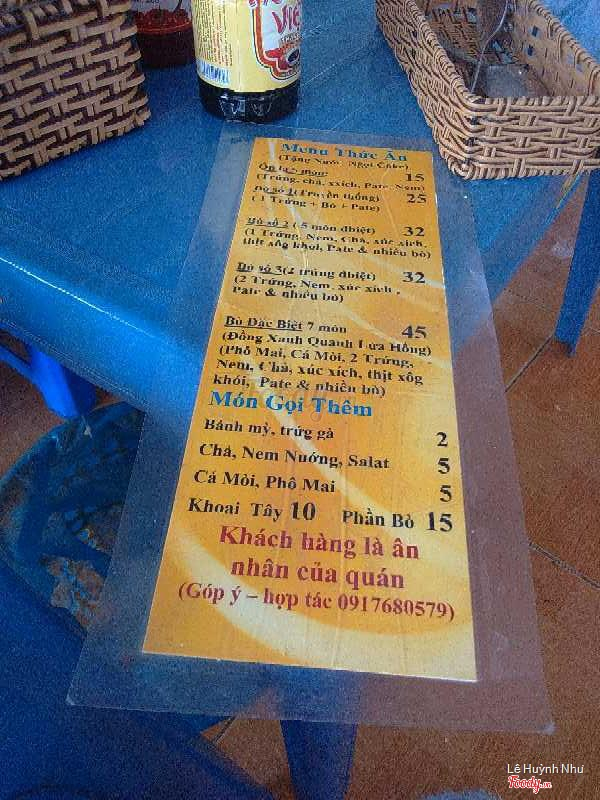 Việt
Menu Thức Ăn
(Tặng Nước Ngọt Coke)
Ốp la 5 món: 15
(Trứng, chả, xxích, Pate, Nem)
Bò số 1(Truyền thống) 25
( 1 Trứng + Bò + Pate)
Bò số 2 ( 5 món đbiệt) 32
(1 Trứng, Nem, Chả, xúc xích,
thịt xông khói, Pate & nhiều bò)
Bò số 3(2 trứng đbiệt) 32
(2 Trứng, Nem, xúc xích ,
Pate & nhiều bò)
Bò Đặc Biệt 7 món 45
(Đồng Xanh Quanh Lửa Hồng)
(Phô Mai, Cá Mòi, 2 Trứng,
Nem, Chả, xúc xích, thịt xông
khói, Pate & nhiều bò)
Món Gọi Thêm
Bánh mỳ, trứg gà 2
Chả, Nem Nướng, Salat 5
Cá Mòi, Phô Mai 5
Khoai Tây 10 Phần Bò 15
Khách hàng là ân
nhân của quán
(Góp ý – hợp tác 0917680579)
Lê Huỳnh Như
Foody.vn